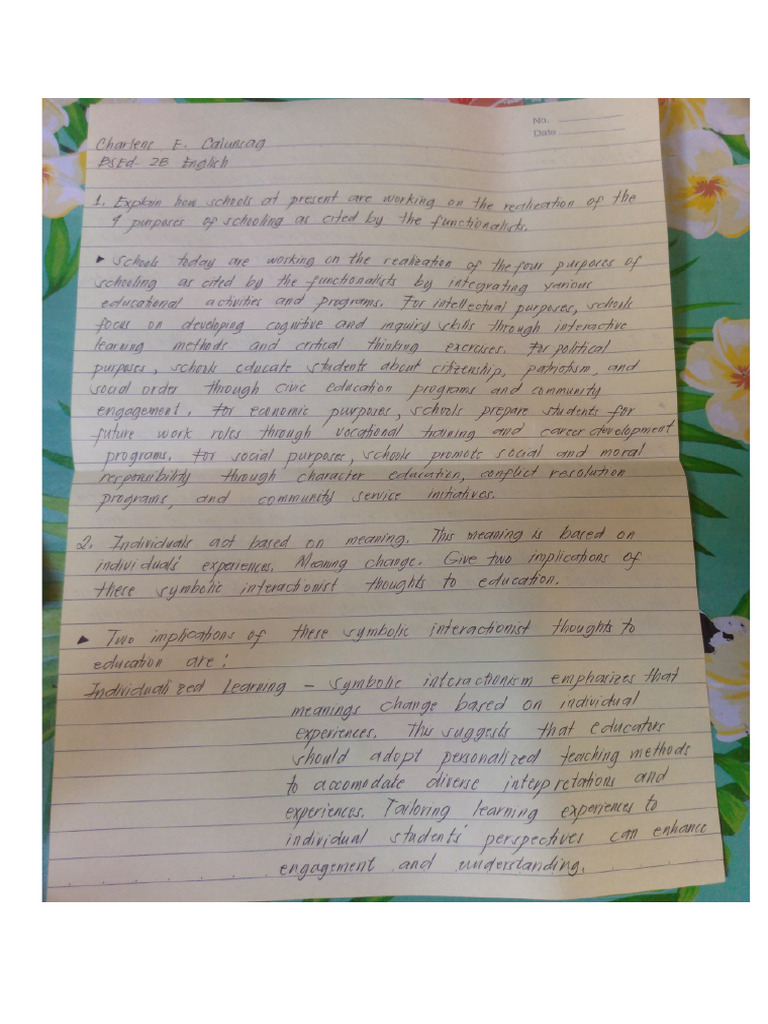 No.
Date
Charlene E. Calunsag
BSEd- 2B English
1. Explain how schools at present are working on the realization of the
4 purposes of schooling as cited by the functionalists.
▸ Schools today are working on the realization of the four purposes of
schooling as cited by the functionalists by integrating various
educational activities and programs. For intellectual purposes, schools
focus on developing cognitive and inquiry skills through interactive
learning methods and critical thinking exercises. For political
purposes, schools educate students about citizenship, patriotism, and
social order through civic education programs and community
engagement. For economic purposes, schools prepare students for
future work roles through vocational training and career development
programs. For social purposes, schools promote social and moral
responsibility through character education, conflict resolution
programs, and community service initiatives.
2. Individuals act based on meaning. This meaning is based on
individuals' experiences. Meaning change. Give two implications of
these symbolic interactionist thoughts to education.
▸ Two implications of these symbolic interactionist thoughts to
education are:
Individualized Learning – symbolic interactionism emphasizes that
meanings change based on individual
experiences. This suggests that educators
should adopt personalized teaching methods
to accomodate diverse interpretations and
experiences. Tailoring learning experiences to
individual students' perspectives can enhance
engagement and understanding.